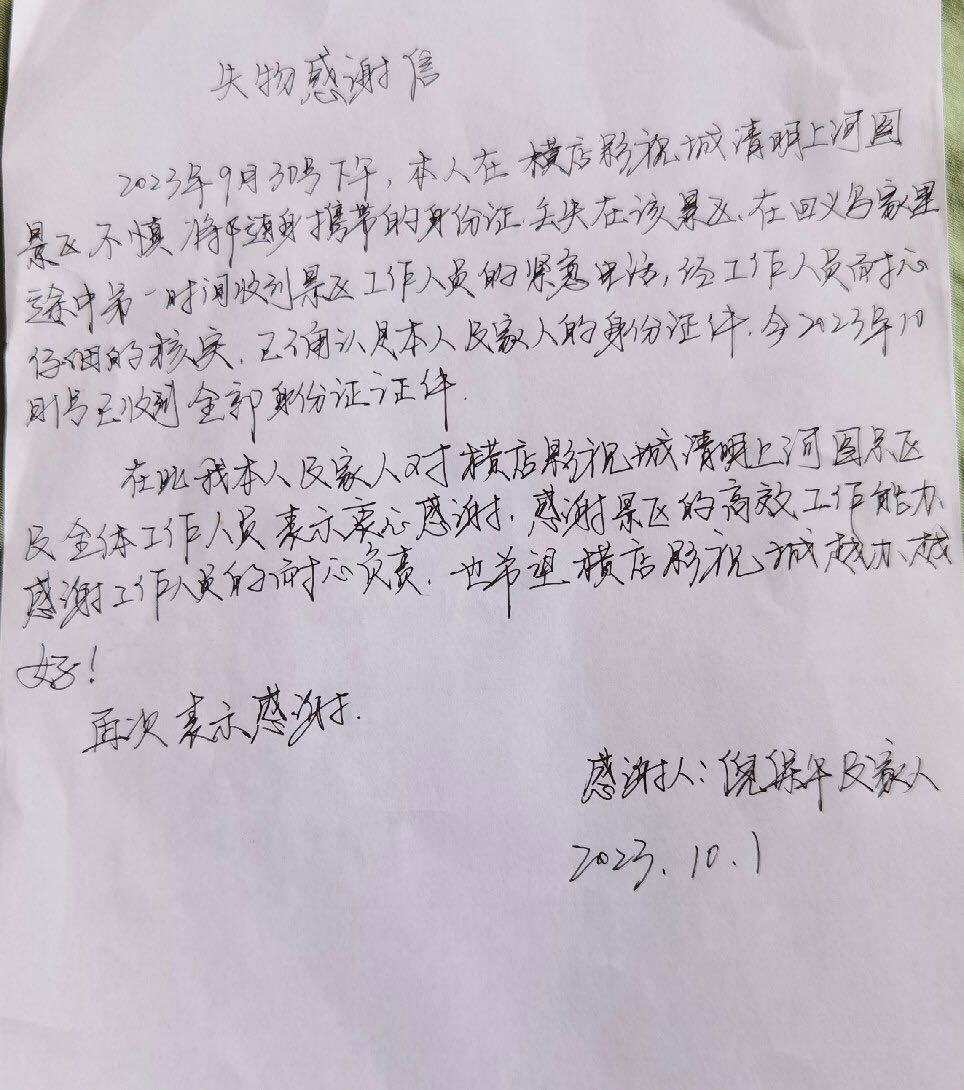 失物感谢信
2023年9月30号下午，本人在横店影视城清明上河图
景区不慎将随身携带的身份证丢失在该景区，在回义乌家里
途中第一时间收到景区工作人员的紧急电话，经工作人员耐心
仔细的核实，已确认是本人及家人的身份证件，今2023年10
月1号已收到全部身份证证件．
在此我本人及家人对横店影视城清明上河图景区
及全体工作人员表示衷心感谢．感谢景区的高效工作能力
感谢工作人员的耐心负责．也希望横店影视城越办越
好！
再次表示感谢．
感谢人：倪保午及家人
2023.10.1